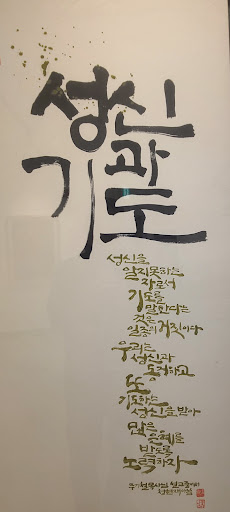 성신
과
기도
성신을
알지못하는
자로서
기도를
말한다는
것은
일종의 거짓이다
우리는
성신과
동거하고
또
기도하는
성신을 받아
많은
은혜를
받도록
노력하자